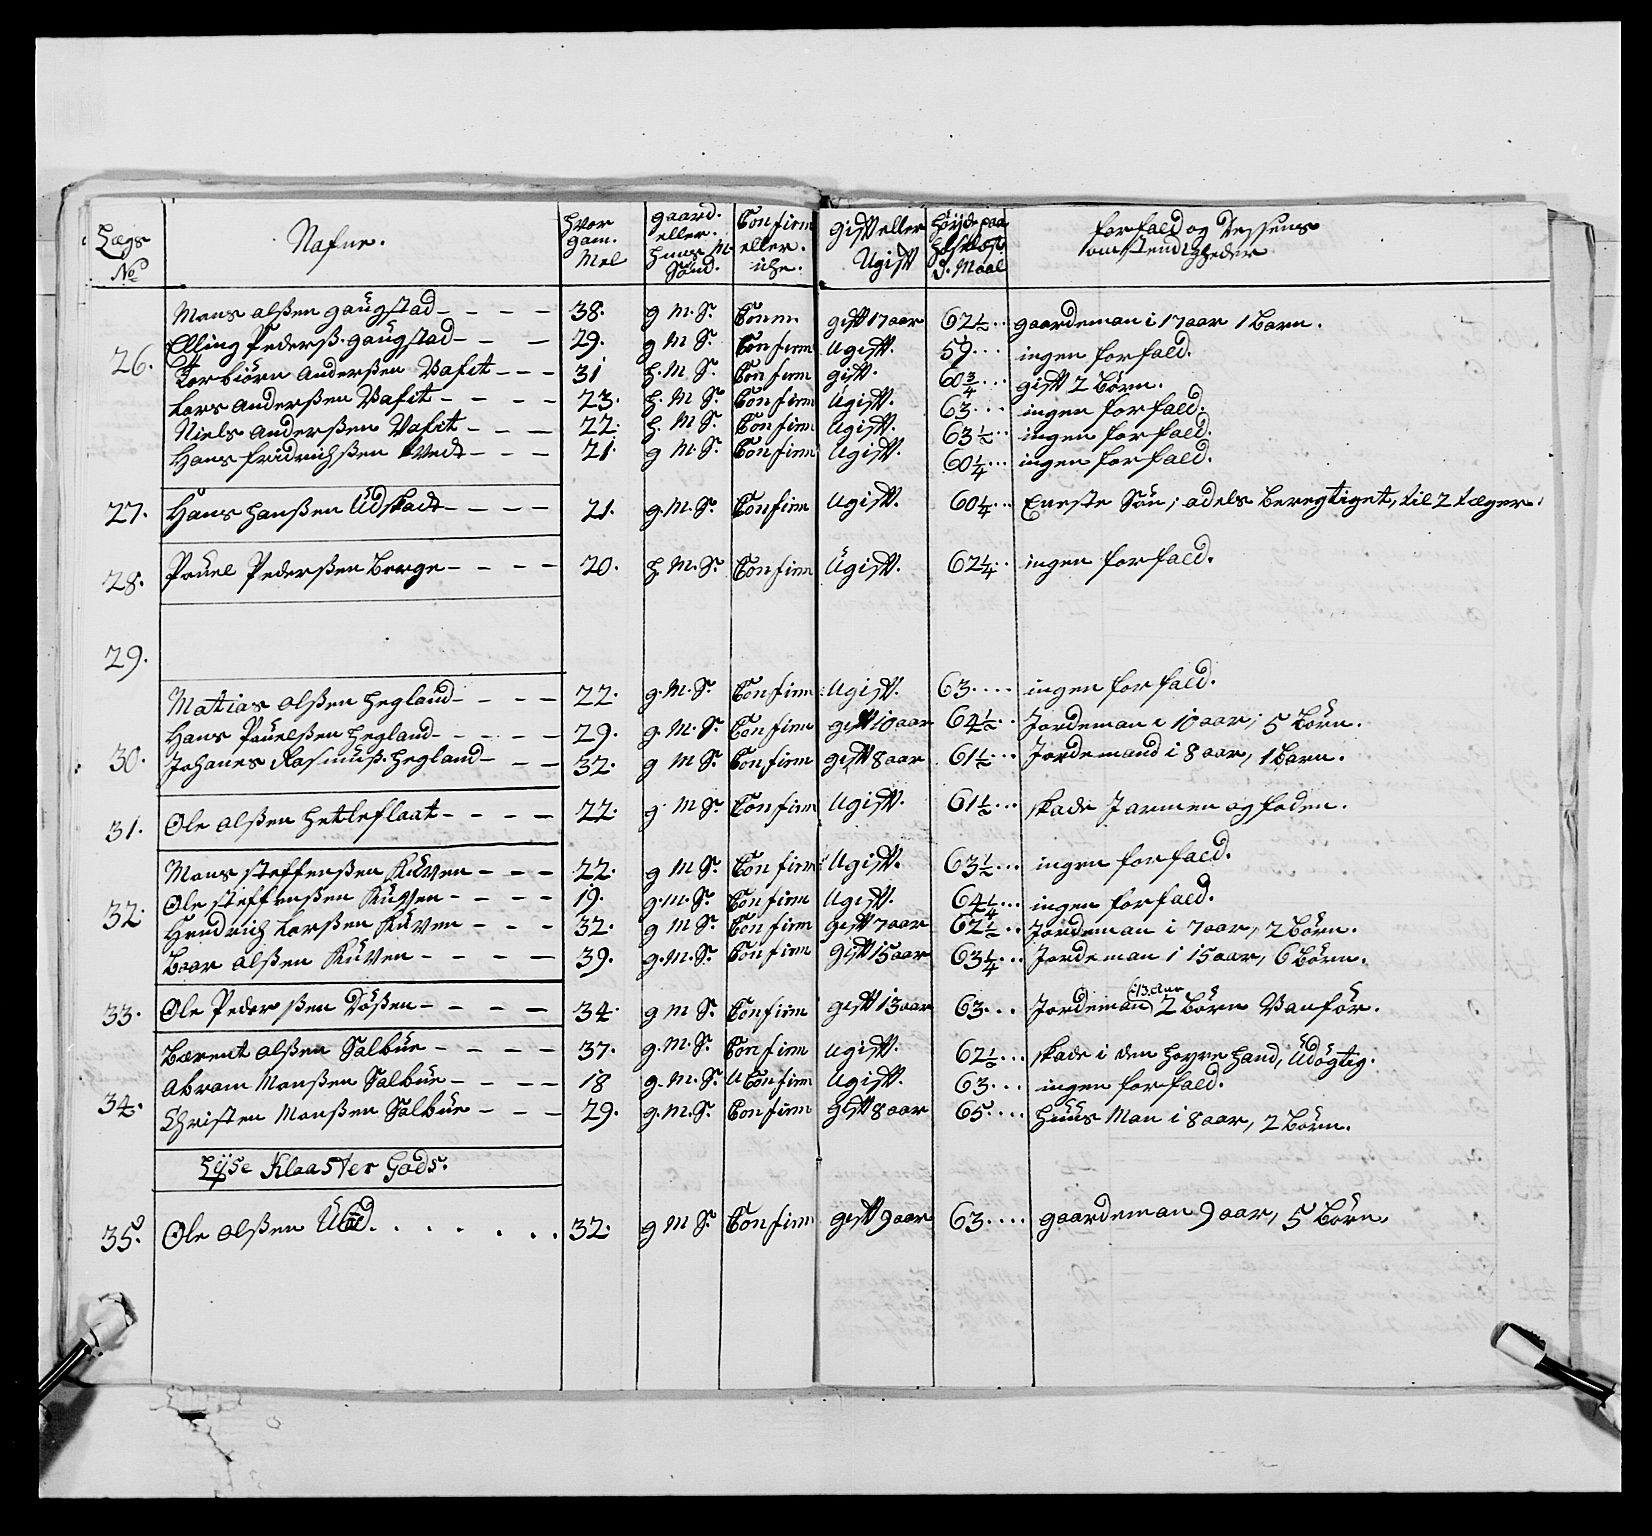 Lægs No | Nafne. | hvor gam. Mel | gaard. eller. huus M. Sönd. | Confirm eller. iche. | gift eller Ugift | höyde paa hoselöst S. Maal | forfald og dessens omstendigheder
Mons olßen gaugstad – – – – | 38. | g M. S. | Confirm | gift 17 aar | 62½ ... | gaardeman i 17 aar 1 barn.
Elling Pederß. gaugstad – – – | 29. | g M S. | Confirm | Ugift. | 59 ... | ingen forfald.
26. Torbiörn Anderßen Vafit – – – | 31 | h. M. S. | Confirm | gift. | 60¾ ... | gift 2 börn.
Lars Anderßen Vafit – – – – | 23. | h. M S. | Confirm | Ugift. | 63 ... | ingen forfald.
Niels Anderßen Vafit – – – | 22. | h. M S. | Confirm | Ugift. | 63½ ... | ingen forfald.
Hans fridrichßen Vedt – – – | 21. | g M. S. | Confirm | Ugift. | 60¼ ... | ingen forfald.
27. Hans Hanßen Udskadt – – – – | 21. | g. M. S. | Confirm | Ugift. | 60¼ ... | Eneste Sön, adels beregtiget, til 2 læger.
28. Pouel Pederßen Berge – – – – | 20. | h M. S. | Confirm | Ugift. | 62¼ .. | ingen forfald.
29.
Matias olßen hegland – – – – | 22. | g. M. S. | Confirm | Ugift. | 63 .... | ingen forfald.
Hans Pouelßen hegland – – – – – | 29. | g. M. S. | Confirm | gift 10 aar | 64½ .. | Jordeman i 10 aar, 5 börn.
30. Johanes Rasmusß. hegland – – – | 32. | g M S. | Confirm | gift 8 aar | 61½ ... | Jordemand i 8 aar, 1 barn.
31. Ole olßen hetleflaat – – – – | 22. | g. M S. | Confirm | Ugift. | 61½ ... | skade J armen og foden.
Mons steffenßen Kuven – – – | 22. | g M S. | Confirm | Ugift. | 63½ ... | ingen forfald.
Ole steffenßen Kuven – – – – | 19. | g. M. S. | Confirm | Ugift. | 64¼ ... | ingen forfald.
32. Hendrich Larßen Kuven – – – | 32. | g M S. | Confirm | gift 7 aar | 62½ .. | Jordeman i 7 aar, 2 börn.
Baar olßen Kuven – – – – | 39. | g. M. S. | Confirm | gift 15 aar | 63¼ ... | Jordeman i 15 aar, 6 börn.
33. Ole Pederßen Dößen – – – – | 34. | g M S. | Confirm | gift 13 aar | 63 ... | Jordeman i 13 Aar 2 börn Vanför.
Bærent olßen Salbue – – – – | 37. | g. M. S. | Confirm | Ugift. | 62½ ... | skade i den høyre hand, Udögtig.
Abram Monßen Salbue – – – – | 18 | g. M. S. | U Confirm | Ugift. | 63 ... | ingen forfald.
34. Christen Monßen Salbue – – – | 29. | g. M. S. | Confirm | gift 8 aar | 65. ... | Huus Man i 8 aar, 2 börn.
Lÿse Klaaster Gods.
35. Ole olßen | 32. | g M S. | Confirm | gift 9 aar | 63 .... | gaardeman 9 aar, 5 börn.